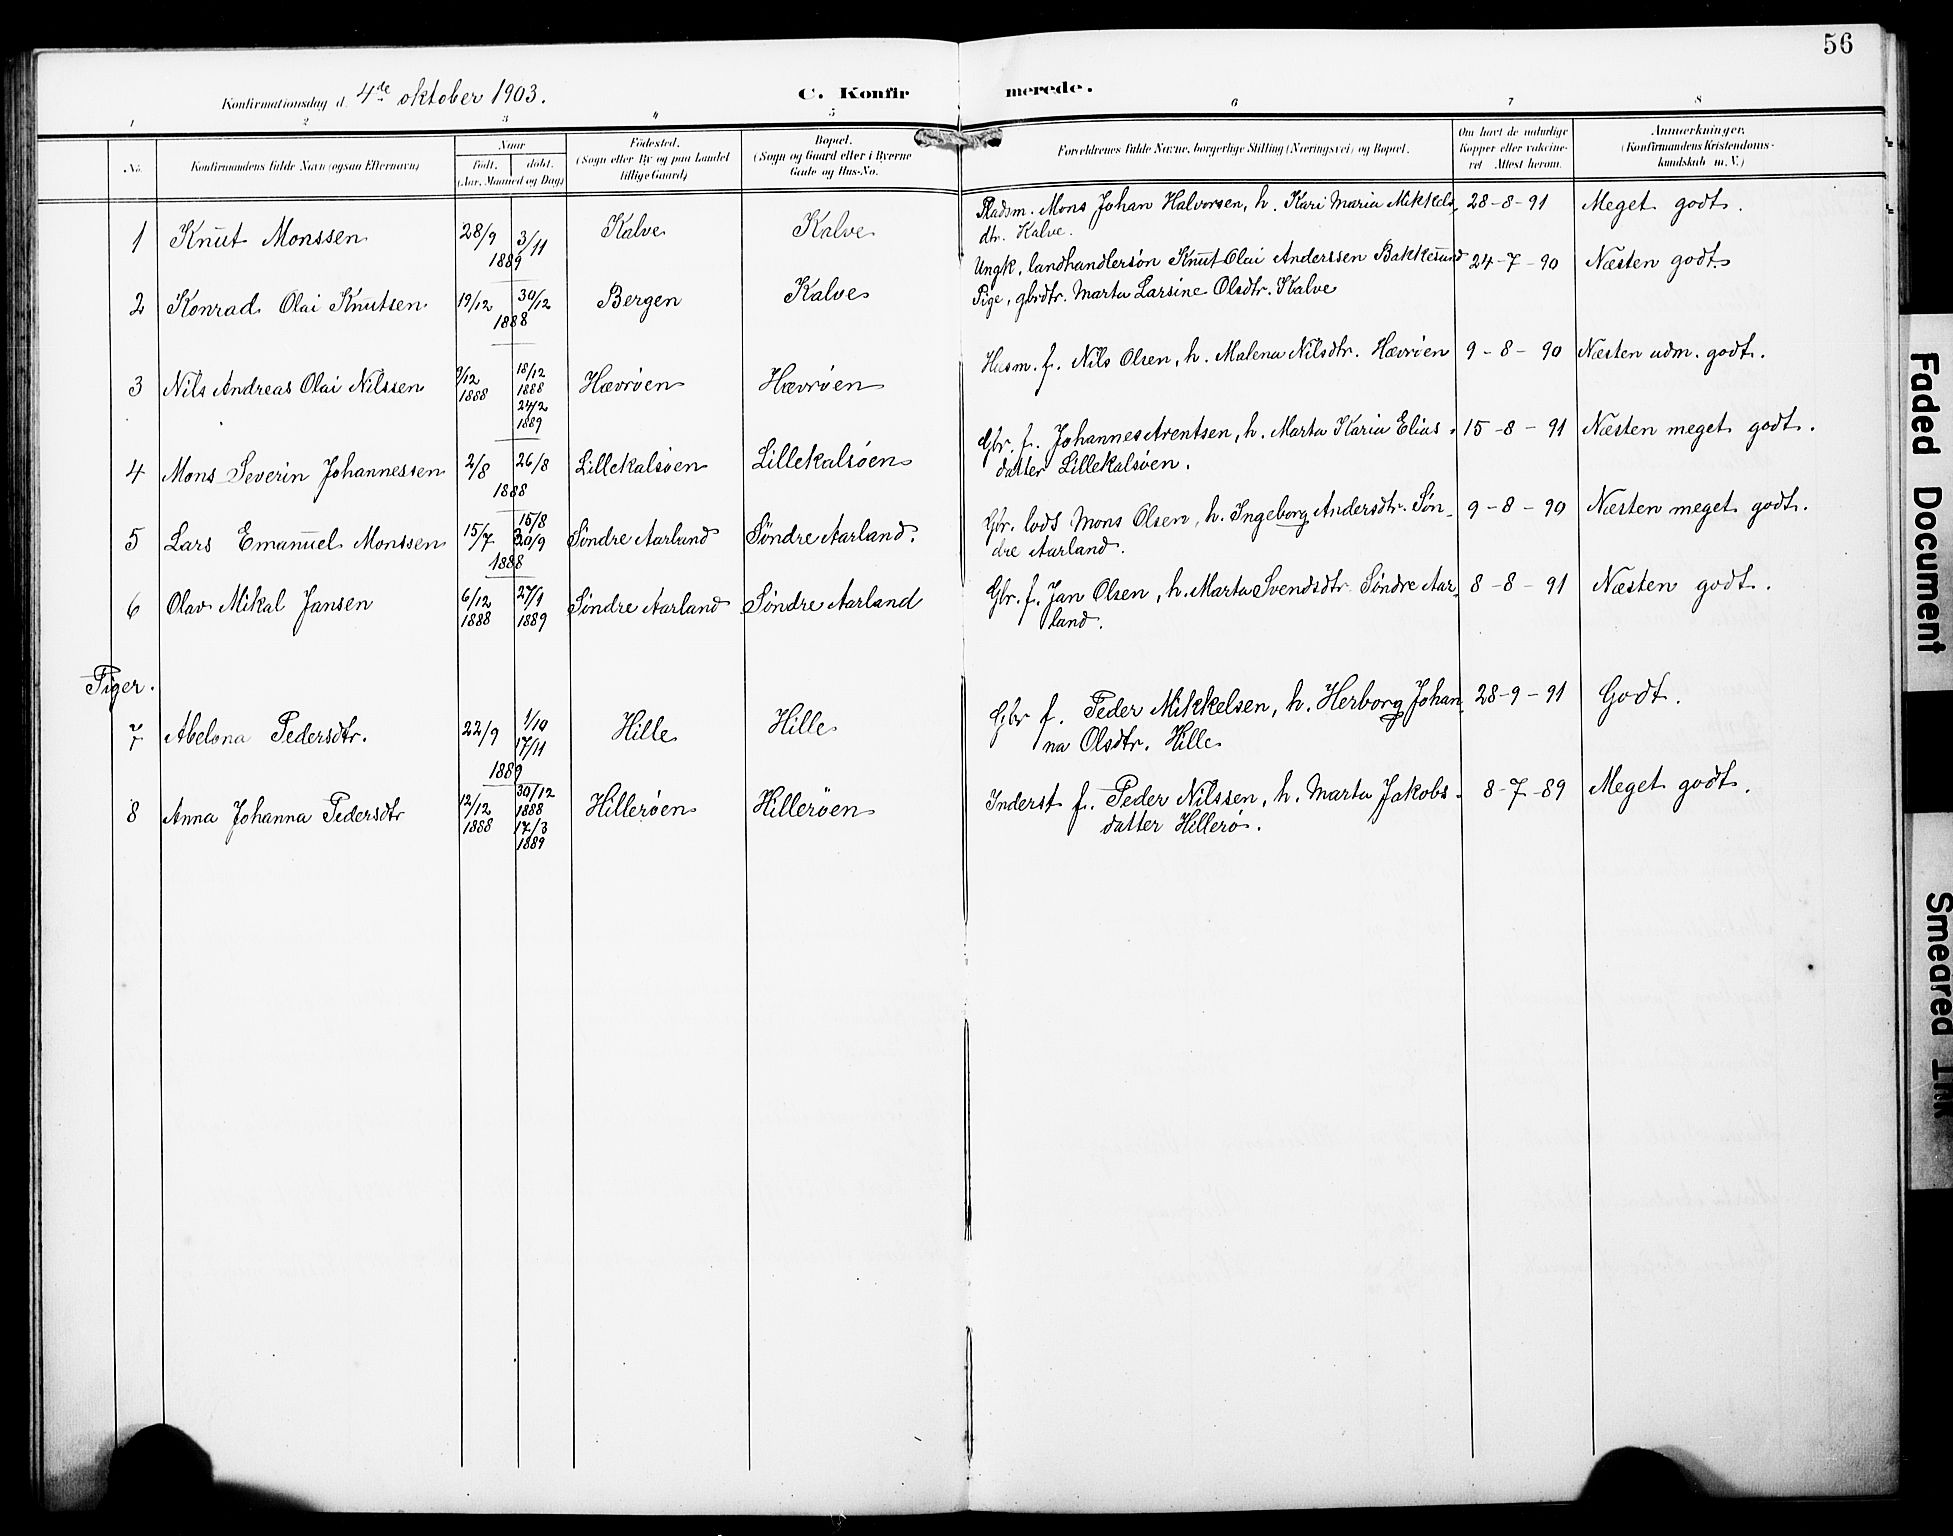 56
Konfirmationsdag d. 4de oktober 1903.
C. Konfirmerede.
1 2 3 4 5 6 7 8
No.
Konfirmandens fulde Navn (ogsaa Efternavn)
Naar
født. døbt.
(Aar, Maaned og Dag)
Fødested.
(Sogn eller By og paa Landet
tillige Gaard)
Bopæl.
(Sogn og Gaard eller i Byerne
Gade og Hus-No.
Forældrenes fulde Navne, borgerlige Stilling (Næringsvei) og Bopæl.
Om havt de naturlige
Kopper eller vaccine-
ret Attest herom.
Anmærkninger.
(Konfirmandens Kristendoms-
kundskab m. V.)
1 Knut Monssen 28/9 3/11 1889 Kalve Kalve Pladsm. Mons Johan Halvorsen, h. Kari Maria Mikkels 28-8-91 Meget godt.
dtr. Kalve.
2 Konrad Olai Knutsen 19/12 30/12 1888 Bergen Kalve Ungk, landhandlersøn Knut Olai Anderssen Bakkesund 24-7-90 Næsten godt
Pige, gbrdtr. Marta Larsine Olsdtr. Kalve
3 Nils Andreas Olai Nilssen 9/12 1888 18/12 1888 24/2 1889 Hævrøen Hævrøen Husm. f. Nils Olsen, h. Malena Nilsdtr. Hævrøen 9-8-90 Næsten udm. godt.
4 Mons Severin Johannessen 2/8 26/8 1888 Lillekalsøen Lillekalsøen Gbr. f. Johannes Arentsen, h. Marta Karia Elias- 15-8-91 Næsten meget godt.
datter Lillekalsøen.
5 Lars Emanuel Monssen 15/7 15/8 30/9 1888 Søndre Aarland Søndre Aarland. Gbr. lods Mons Olsen, h. Ingeborg Andersdtr. Søn- 9-8-90 Næsten meget godt.
dre Aarland.
6 Olav Mikal Jansen 6/12 1888 27/1 1889 Søndre Aarland Søndre Aarland Gbr. f. Jan Olsen, h. Marta Svendsdtr Søndre Aar- 8-8-91 Næsten godt.
land.
Piger.
7 Abelona Pedersdtr. 22/9 1/10 17/11 1889 Hille Hille Gbr f. Peder Mikkelsen, h. Herborg Johan- 28-9-91 Godt.
na Olsdtr. Hille
8 Anna Johanna Pedersdtr 12/12 1888 30/12 1888 17/3 1889 Hillerøen Hillerøen Inderst f. Peder Nilssen, h. Marta Jakobs- 8-7-89 Meget godt.
datter Hillerø.
Faded Document
Smeared Ink